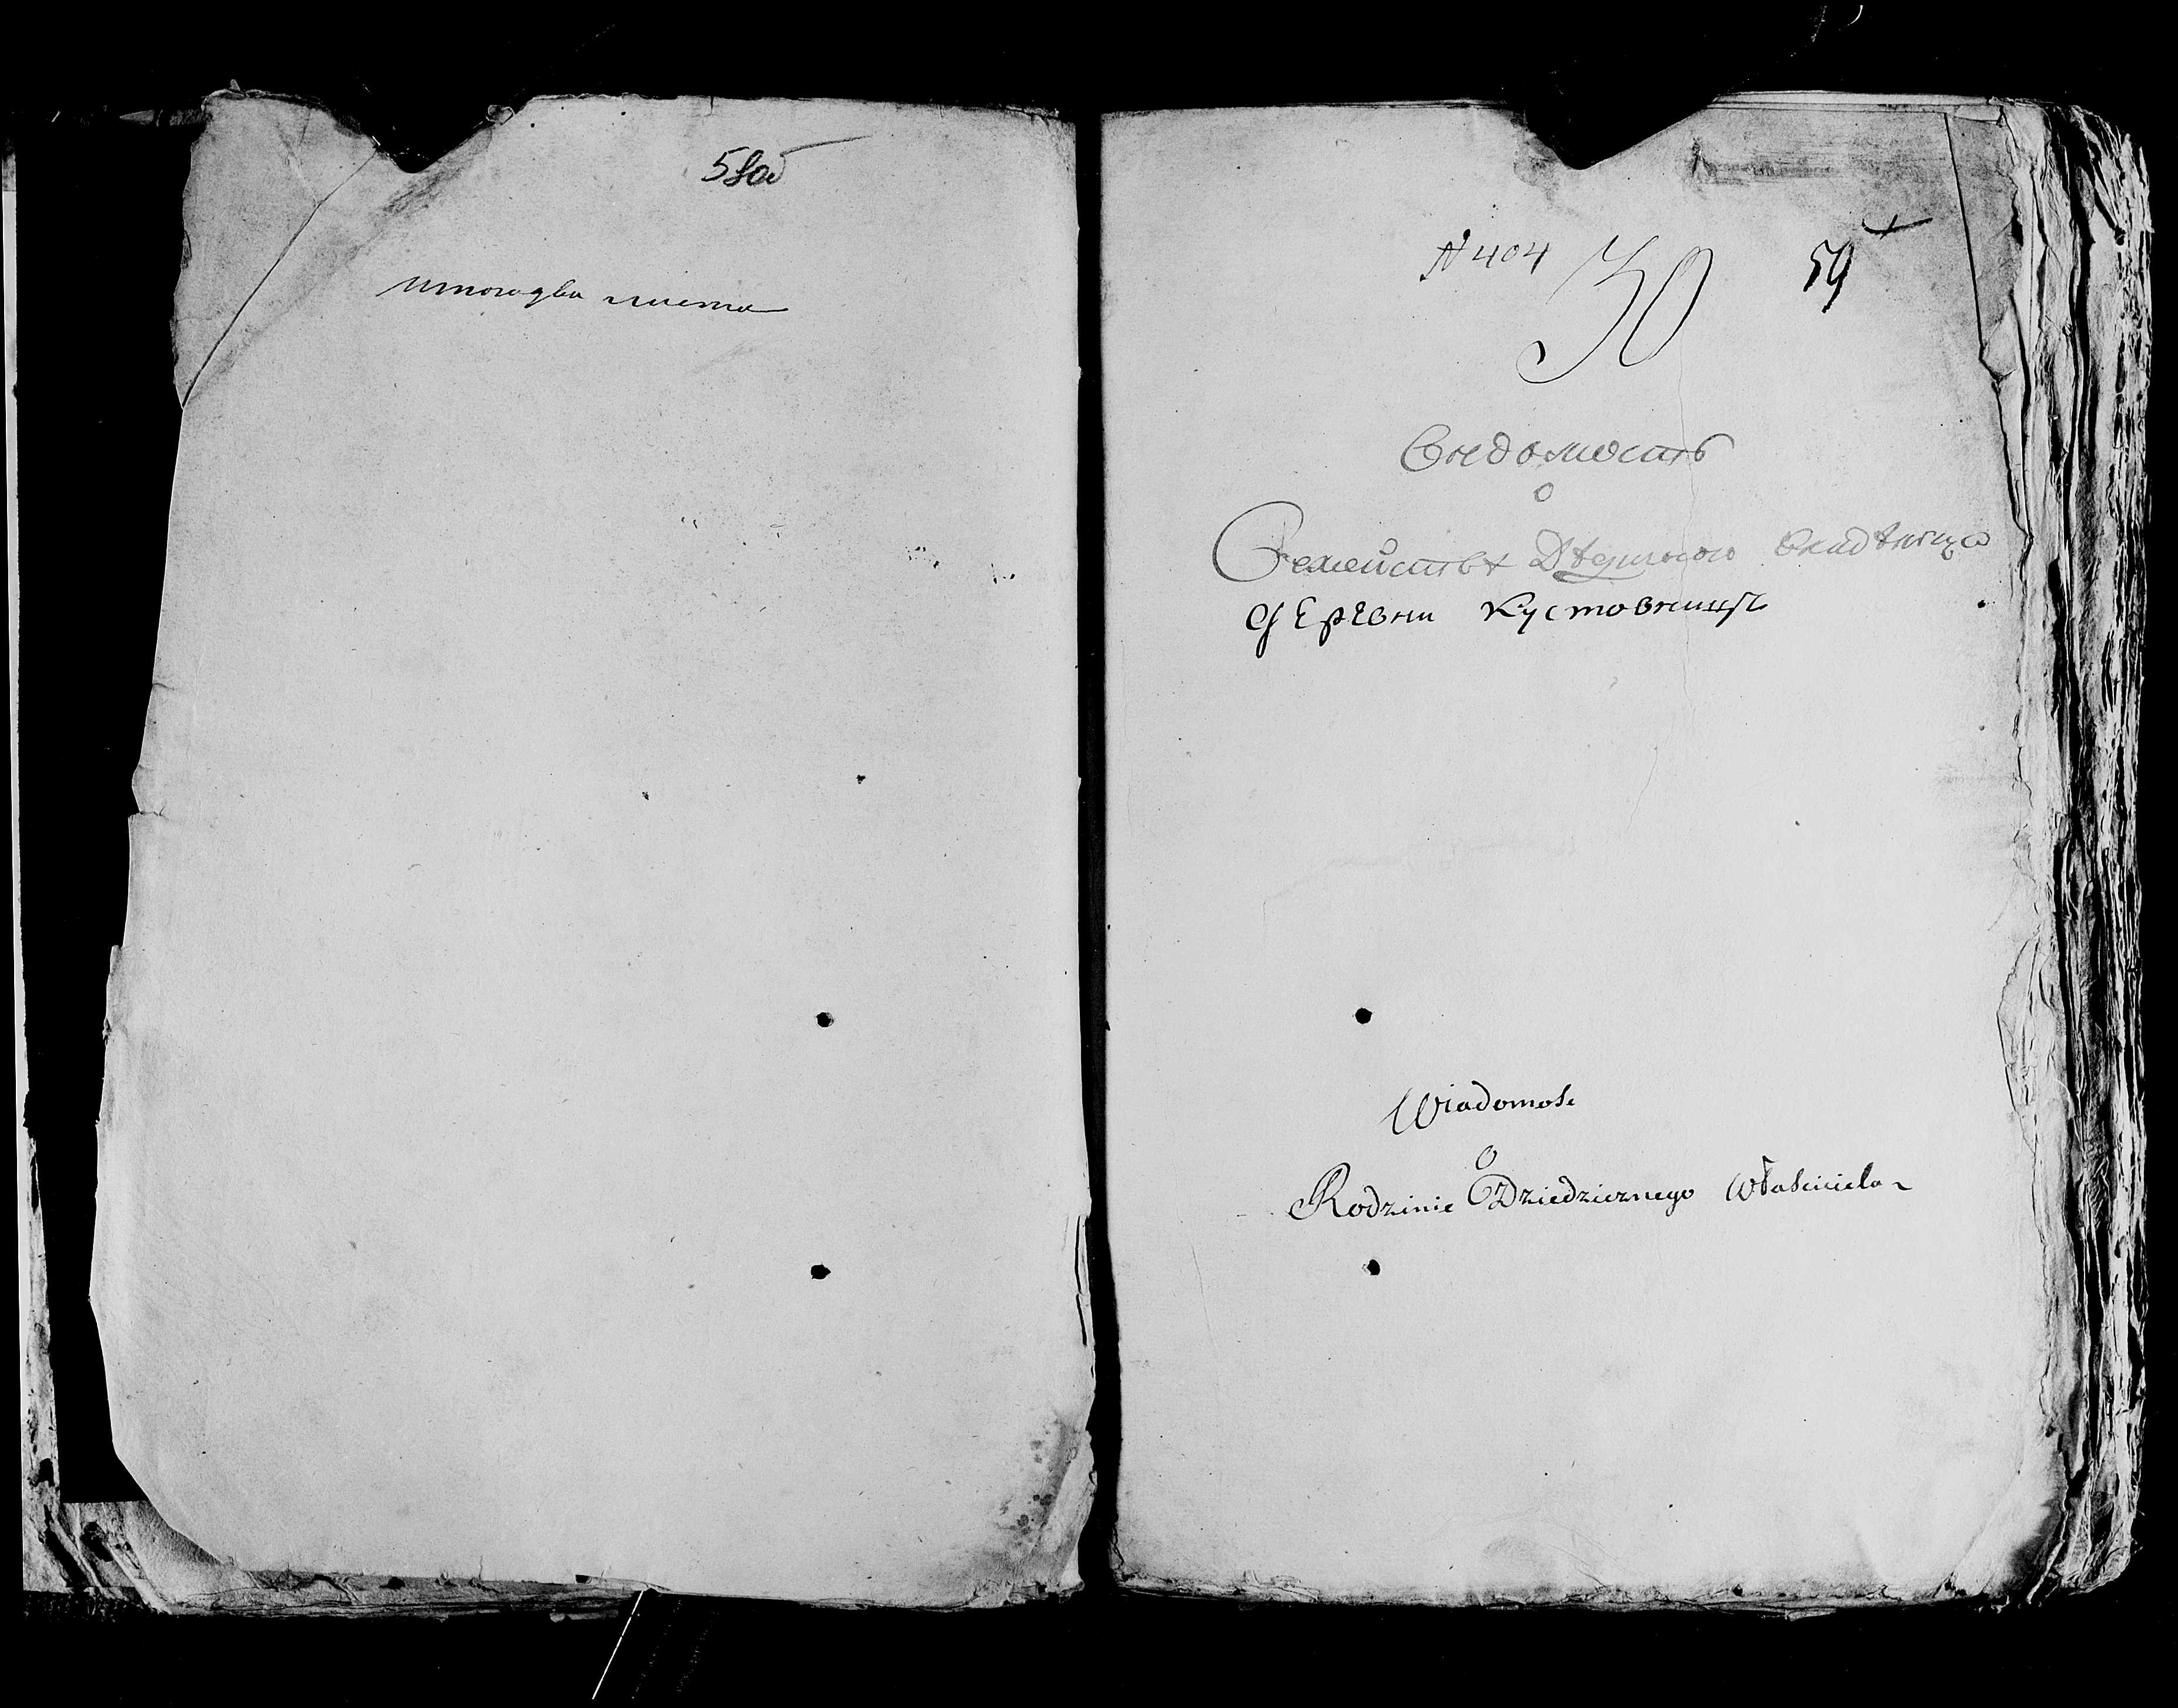 58об
итого два листа
N 404 30 59
Сведомость
о
Семействѣ Дѣдичного Владѣльца
деревни Кустовницъ
Wiadomość
O
Rodzinie Dziedzicznego Właściciela